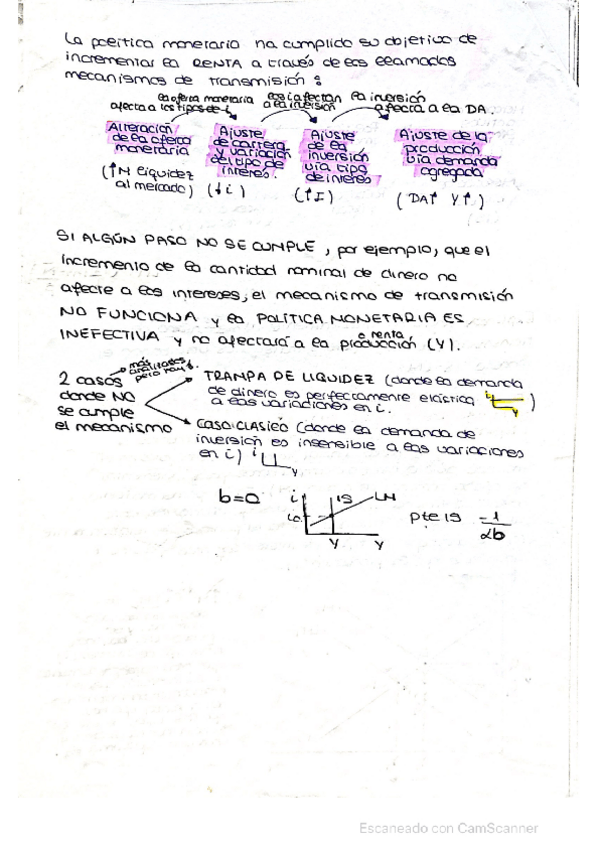 La política monetaria ha cumplido su objetivo de
incrementar la RENTA a través de los llamados
mecanismos de transmisión :
la oferta monetaria afecta a los tipos de i
los i afectan a la inversión
la inversión afecta a la DA.
Alteración de la oferta monetaria
Ajuste de cartera y variación del tipo de interés.
Ajuste de la inversión vía tipo de interés
Ajuste de la producción vía demanda agregada
(↑M liquidez al mercado)
(↓i)
(↑I)
(DA↑ Y↑)
SI ALGÚN PASO NO SE CUMPLE, por ejemplo, que el
incremento de la cantidad nominal de dinero no
afecte a los intereses, el mecanismo de transmisión
NO FUNCIONA y la POLÍTICA MONETARIA ES
o renta
INEFECTIVA y no afectará a la producción (Y).
más analizados pero hay
2 casos
donde NO
se cumple
el mecanismo
TRAMPA DE LIQUIDEZ (donde la demanda
de dinero es perfectamente elástica
a las variaciones en i.
i
Y
)
CASO CLASICO (donde la demanda de
inversión es insensible a las variaciones
en i)
i
Y
b=0
i
IS
LM
io
Y
Y
pte IS
-1
αb
Escaneado con CamScanner